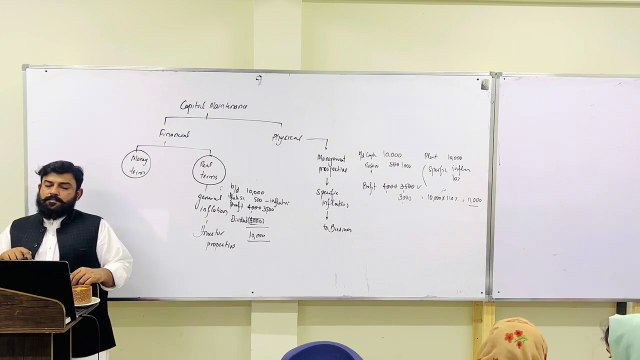 Capital Maintenance
Financial
Physical
Money
terms
Real
terms
Management
prospective
Specific
inflation
to Business
general
inflation
Investor
prospective
b/d 10,000
500 - inflation
Profit 4000 3500
10,000
b/d Cap 10,000
500 1000
Profit 4000 3500
3000
Plant 10,000
Specific inflation
10%
= 10,000 x 110% = 11,000